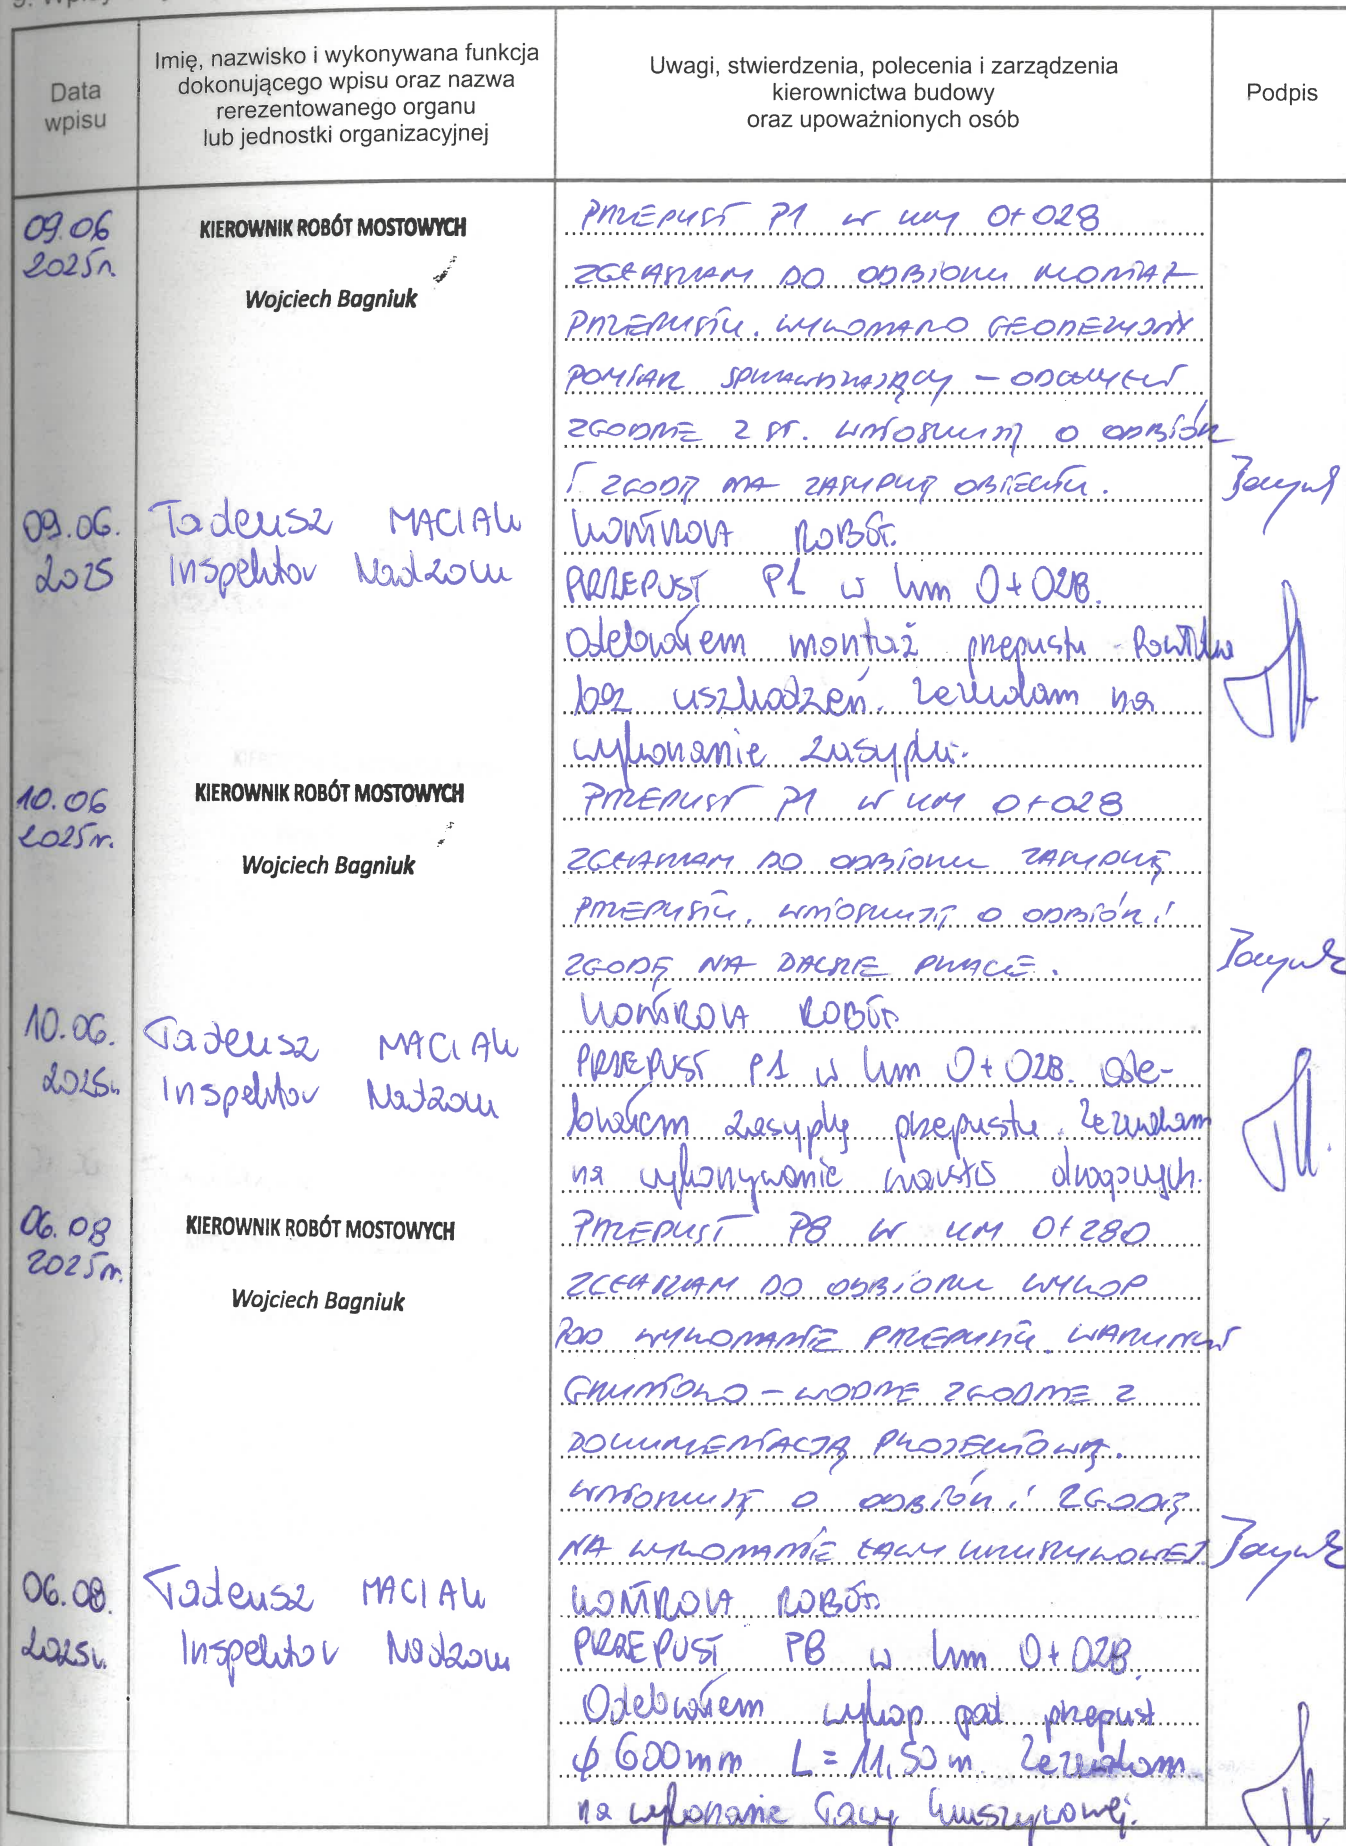 Data
wpisu
Imię, nazwisko i wykonywana funkcja
dokonującego wpisu oraz nazwa
rerezentowanego organu
lub jednostki organizacyjnej
Uwagi, stwierdzenia, polecenia i zarządzenia
kierownictwa budowy
oraz upoważnionych osób
Podpis
09.06
2025r.
KIEROWNIK ROBÓT MOSTOWYCH
Wojciech Bagniuk
PRZEPUST P1 W KM 0+028
ZGŁASZAM DO ODBIORU MONTAŻ
PRZEPUSTU. WYKONANO GEODEZYJNY
POMIAR SPRAWDZAJĄCY – ODCHYŁKI
ZGODNE Z ST. WNIOSKUJĘ O ODBIÓR
I ZGODĘ NA ZASYPKĘ OBIEKTU.
09.06.
2025
Tadeusz MACIAK
Inspektor Nadzoru
KONTROLA ROBÓT.
PRZEPUST P1 w km 0+028.
Odebrałem montaż przepustu - Powłoka
bez uszkodzeń. Zezwalam na
wykonanie zasypki.
10.06
2025r.
KIEROWNIK ROBÓT MOSTOWYCH
Wojciech Bagniuk
PRZEPUST P1 W KM 0+028
ZGŁASZAM DO ODBIORU ZASYPKĘ
PRZEPUSTU. WNIOSKUJĘ O ODBIÓR I
ZGODĘ NA DALSZE PRACE.
10.06.
2025r.
Tadeusz MACIAK
Inspektor Nadzoru
KONTROLA ROBÓT
PRZEPUST P1 w km 0+028. Ode-
brałem zasypkę przepustu. Zezwalam
na wykonywanie warstw drogowych.
06.08
2025r.
KIEROWNIK ROBÓT MOSTOWYCH
Wojciech Bagniuk
PRZEPUST P8 W KM 0+280
ZGŁASZAM DO ODBIORU WYKOP
POD WYKONANIE PRZEPUSTU. WARUNKI
GRUNTOWO – WODNE ZGODNE Z
DOKUMENTACJĄ PROJEKTOWĄ.
WNIOSKUJĘ O ODBIÓR I ZGODĘ
NA WYKONANIE ŁAWY KRUSZYWOWEJ
06.08.
2025r.
Tadeusz MACIAK
Inspektor Nadzoru
KONTROLA ROBÓT
PRZEPUST P8 w km 0+028.
Odebrałem wykop pod przepust
ϕ 600mm L = 11,50 m. Zezwalam
na wykonanie ławy kruszywowej.